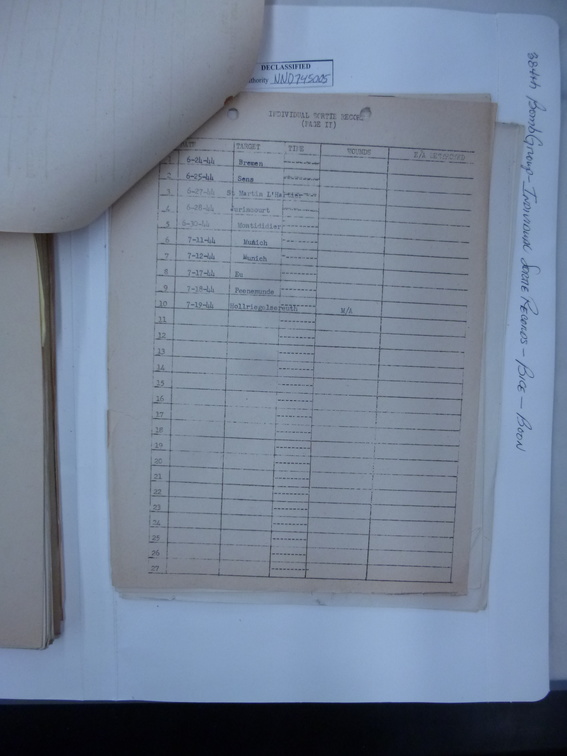 DECLASSIFIED
Authority NND745005
384th Bomb Group - Individual Sortie Records - Bice - Boon
INDIVIDUAL SORTIE RECORD
(PAGE II)
DATE TARGET TIME
1 6-24-44 Bremen
2 6-25-44 Sens
3 6-27-44 St Martin L'
4 6-28-44
5 6-30-44 Montididier
6 7-11-44 Munich
7 7-12-44 Munich
8 7-17-44
9 7-18-44 Peenemunde
10 7-19-44 Hollriegelskreuth M/A
11
12
13
14
15
16
17
18
19
20
21
22
23
24
25
26
27